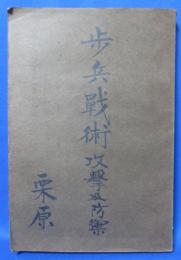 歩兵戰術攻擊及防禦
栗原